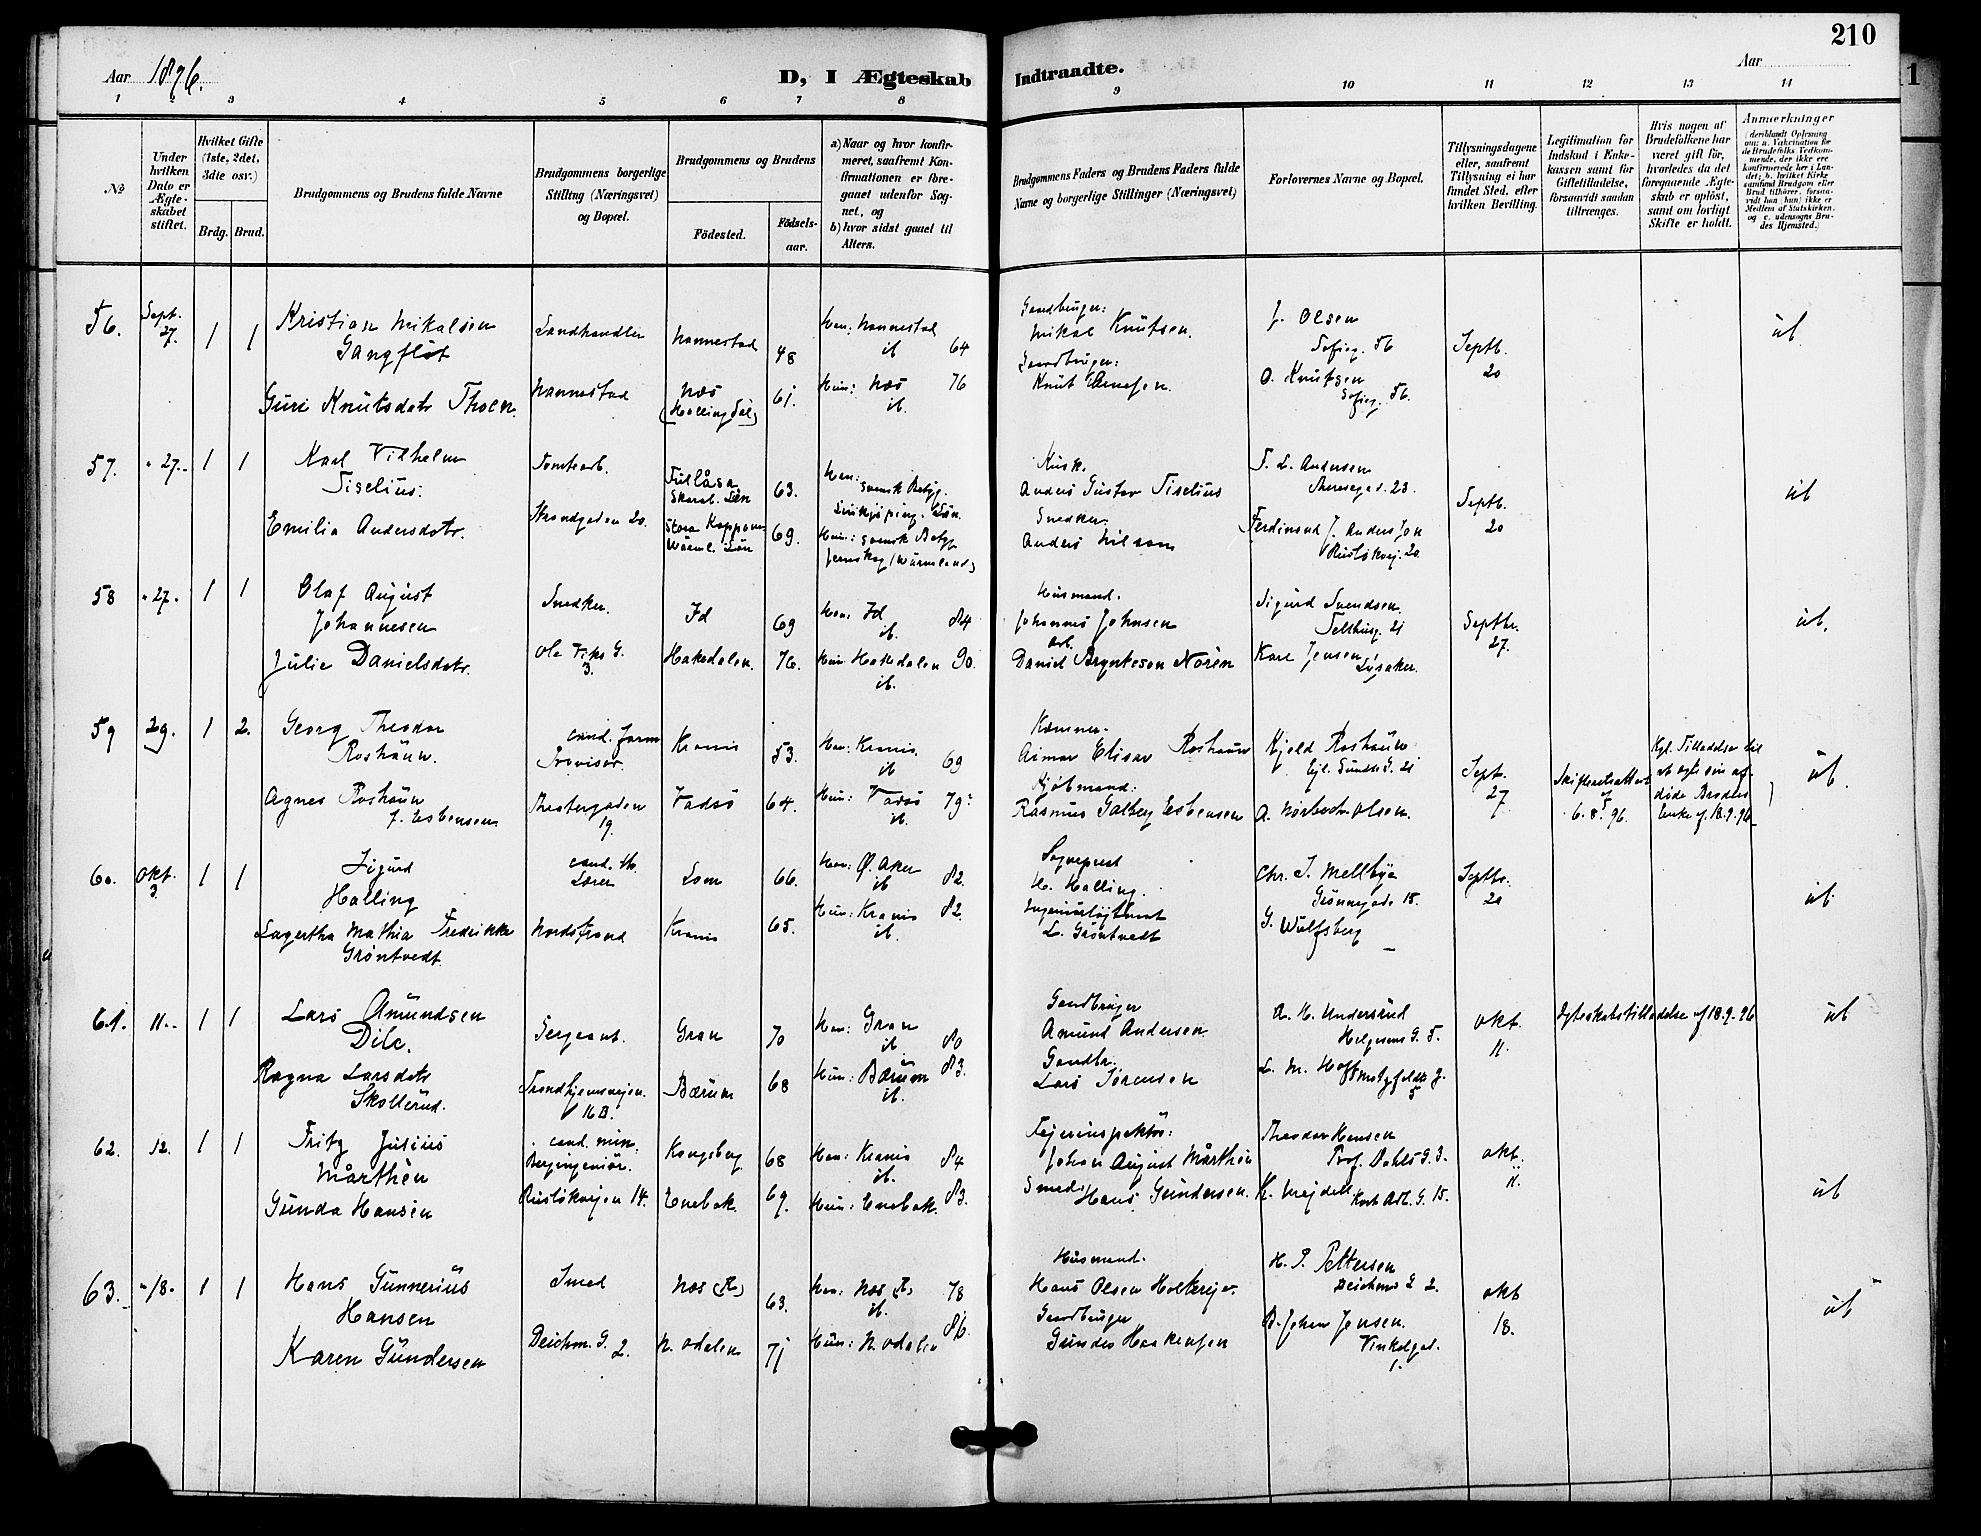 210
Aar 1896.
D, I Ægteskab Indtraadte.
Aar
1 2 3 4 5 6 7 8 9 10 11 12 13 14
No
Under hvilken Dato er Ægteskabet stiftet.
Hvilket Gifte (1ste, 2det, 3die osv.)
Brdg. Brud.
Brudgommens og Brudens fulde Navne
Brudgommens borgerlige Stilling (Næringsvei) og Bopæl.
Brudgommens og Brudens
Födested.
Födselsaar.
a) Naar og hvor konfirmeret, saafremt Konfirmationen er foregaaet udenfor Sognet, og
b) hvor sidst gaaet til Alters.
Brudgommens Faders og Brudens Faders fulde Navne og borgerlige Stillinger (Næringsvei)
Forlovernes Navne og Bopæl.
Tillysningsdagene eller, saafremt Tillysning ei har fundet Sted, efter hvilken Bevilling.
Legitimation for Indskud i Enkekassen samt for Giftetilladelse, forsaavidt saadan tiltrænges.
Hvis nogen af Brudefolkene har været gift för, hvorledes da det foregaaende Ægteskab er oplöst, samt om lovligt Skifte er holdt.
Anmærkninger
56. Sept. 27. 1 1 Kristian Mikalsen Gangflöt
Landhandler Nannestad 48 Han: Nannestad ib 64
Gaardbruger: Mikal Knutsen. J. Olsen Sofieg. 56 Septb. 20 ib
Guri Knutsdatr Thoen. Nannestad Næs (Hallingdal) 61. Hun: Næs ib. 76
Gaardbruger: Knut O. Knutsen Sofieg. 56.
57. " 27. 1 1 Karl Vilhelm Tiselius.
Tomtearb. 63. Han: svensk Betyg. Linkjöping. Län.
Kusk. Anders Gustav Tiselius T. L. Andersen Theresegad. 23. Septb. 20 ib
Emilia Andersdatr. Strandgaden 20. Stora Wärml. Län 69. Hun: svensk Betyg (Wärmland)
Snedker. Anders Nilsson Ferdinand J. Andersson Ruslökvej. 20
58 " 27. 1 1 Olaf August Johannesen
Snedker. Id 69 Han: Id ib. 84
Husmand. Johannes Johnsen Sigurd Svendsen Septbr. 27. ib.
Julie Danielsdatr. Ole 3. Hakedalen. 76. Hun: Hakedalen ib. 90.
arb. Daniel Brynteson Norén Karl Jensen Lysaker.
59 29. 1 2. Georg Theodor Roshauw.
cand. farm Provisor. Krania 53. Han: Krania ib 69
Kæmner. Aimar Elisar Roshauw Kjeld Roshauw Ejl. Sundts G. 21 Sept. 27 Skifteretsattest af 6. 8. 96. Kgl. Tilladelse til at ægte sin afdöde Broders Enke af 18.9.96 ib.
Agnes Roshauw f. Esbensen. Thestergaden 19. Vadsö 64. Hun: Vadsö ib. 79
Kjöbmand: Rasmus Galberg Esbensen A. Olsen.
60. Okt. 3. 1 1 Sigurd Halling
cand. th. Lærer Lom 66. Han: Ø. Aker ib 82.
Sogneprest H. Halling. Chr. S. Mellbye Grönnegade 15. Septbr. 20 ib
Lagertha Mathia Fredrikke Gröntvedt. Nordstrand Krania 65. Hun: Krania ib. 82.
L. Gröntvedt G. Wulfsberg
61. 11. 1 1 Lars Amundsen Dile.
Sergeant. Gran 70 Han: Gran ib. 80
Gaardbruger Amund Andersen A. H. Undersrud Helgesens G. 5. Okt. 11. Ægteskabstilladelse af 18.9.96 ib
Ragna Larsdatr Skollerud. Trondhjemsvejen. 16 B. Bærum 68 Hun: Bærum ib. 83.
Gaardbr. Lars Sørensen L. M. Hoff 5
62. 12. 1 1 Fritz Julius Mårthén
cand. min. Bergingeniör. Kongsberg 68 Han: Krania ib. 84
Fejerinspektör: Johan August Mårthén Theodor Hansen Prof. Dahls G. 3. Okt. 11. ib
Gunda Hansen Ruslökvejen 14. Enebak 69. Hun: Enebak. 83.
Smed: Hans Gundersen. K. Wejdell Kort Ad. G. 15.
63. " 18. 1 1 Hans Gunnerius Hansen
Smed Næs (R) 63. Han: Næs (R) ib. 78
Husmand. Hans Olsen H. P. Pettersen Deichms G 2. Okt 18. ib
Karen Gundersen Deichm. G. 2. N. Odalen 71 Hun: N. Odalen 86.
Gaardbruger Gunder Haakensen B. Johan Jensen. Vinkelgad. 1.